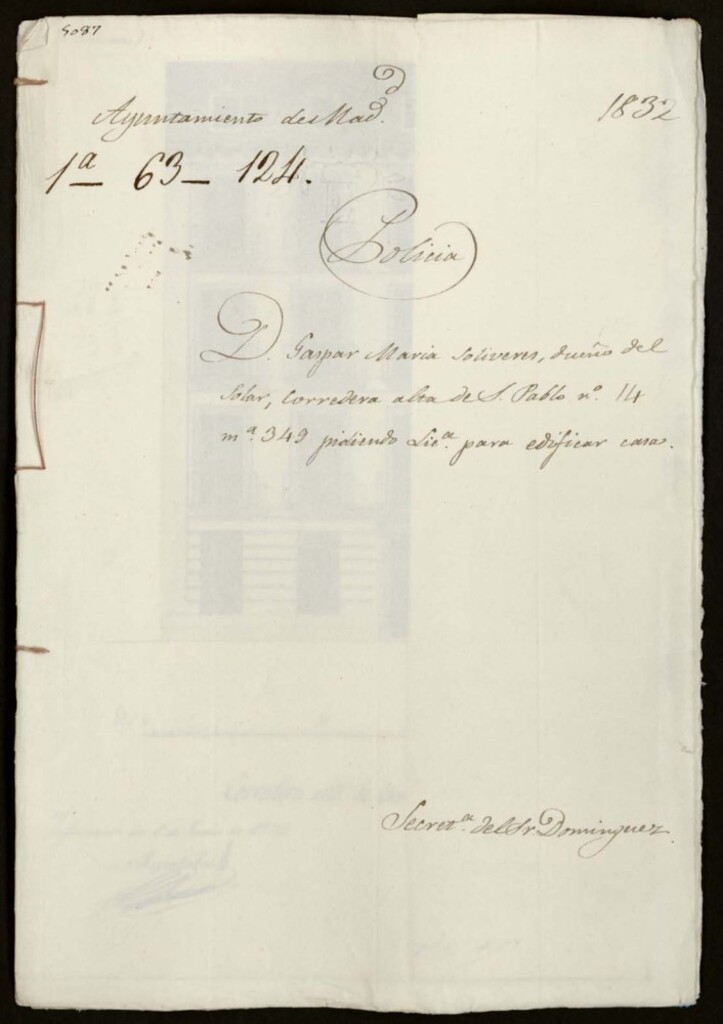 5087
Ayuntamiento de Mad.d
1832
1ª 63 - 124.
Policia
D. Gaspar Maria Soliveres, dueño del
solar, Corredera alta de S. Pablo nº. 14
mª. 349 pidiendo Licª. para edificar casa.
Secretª. del Sr Dominguez